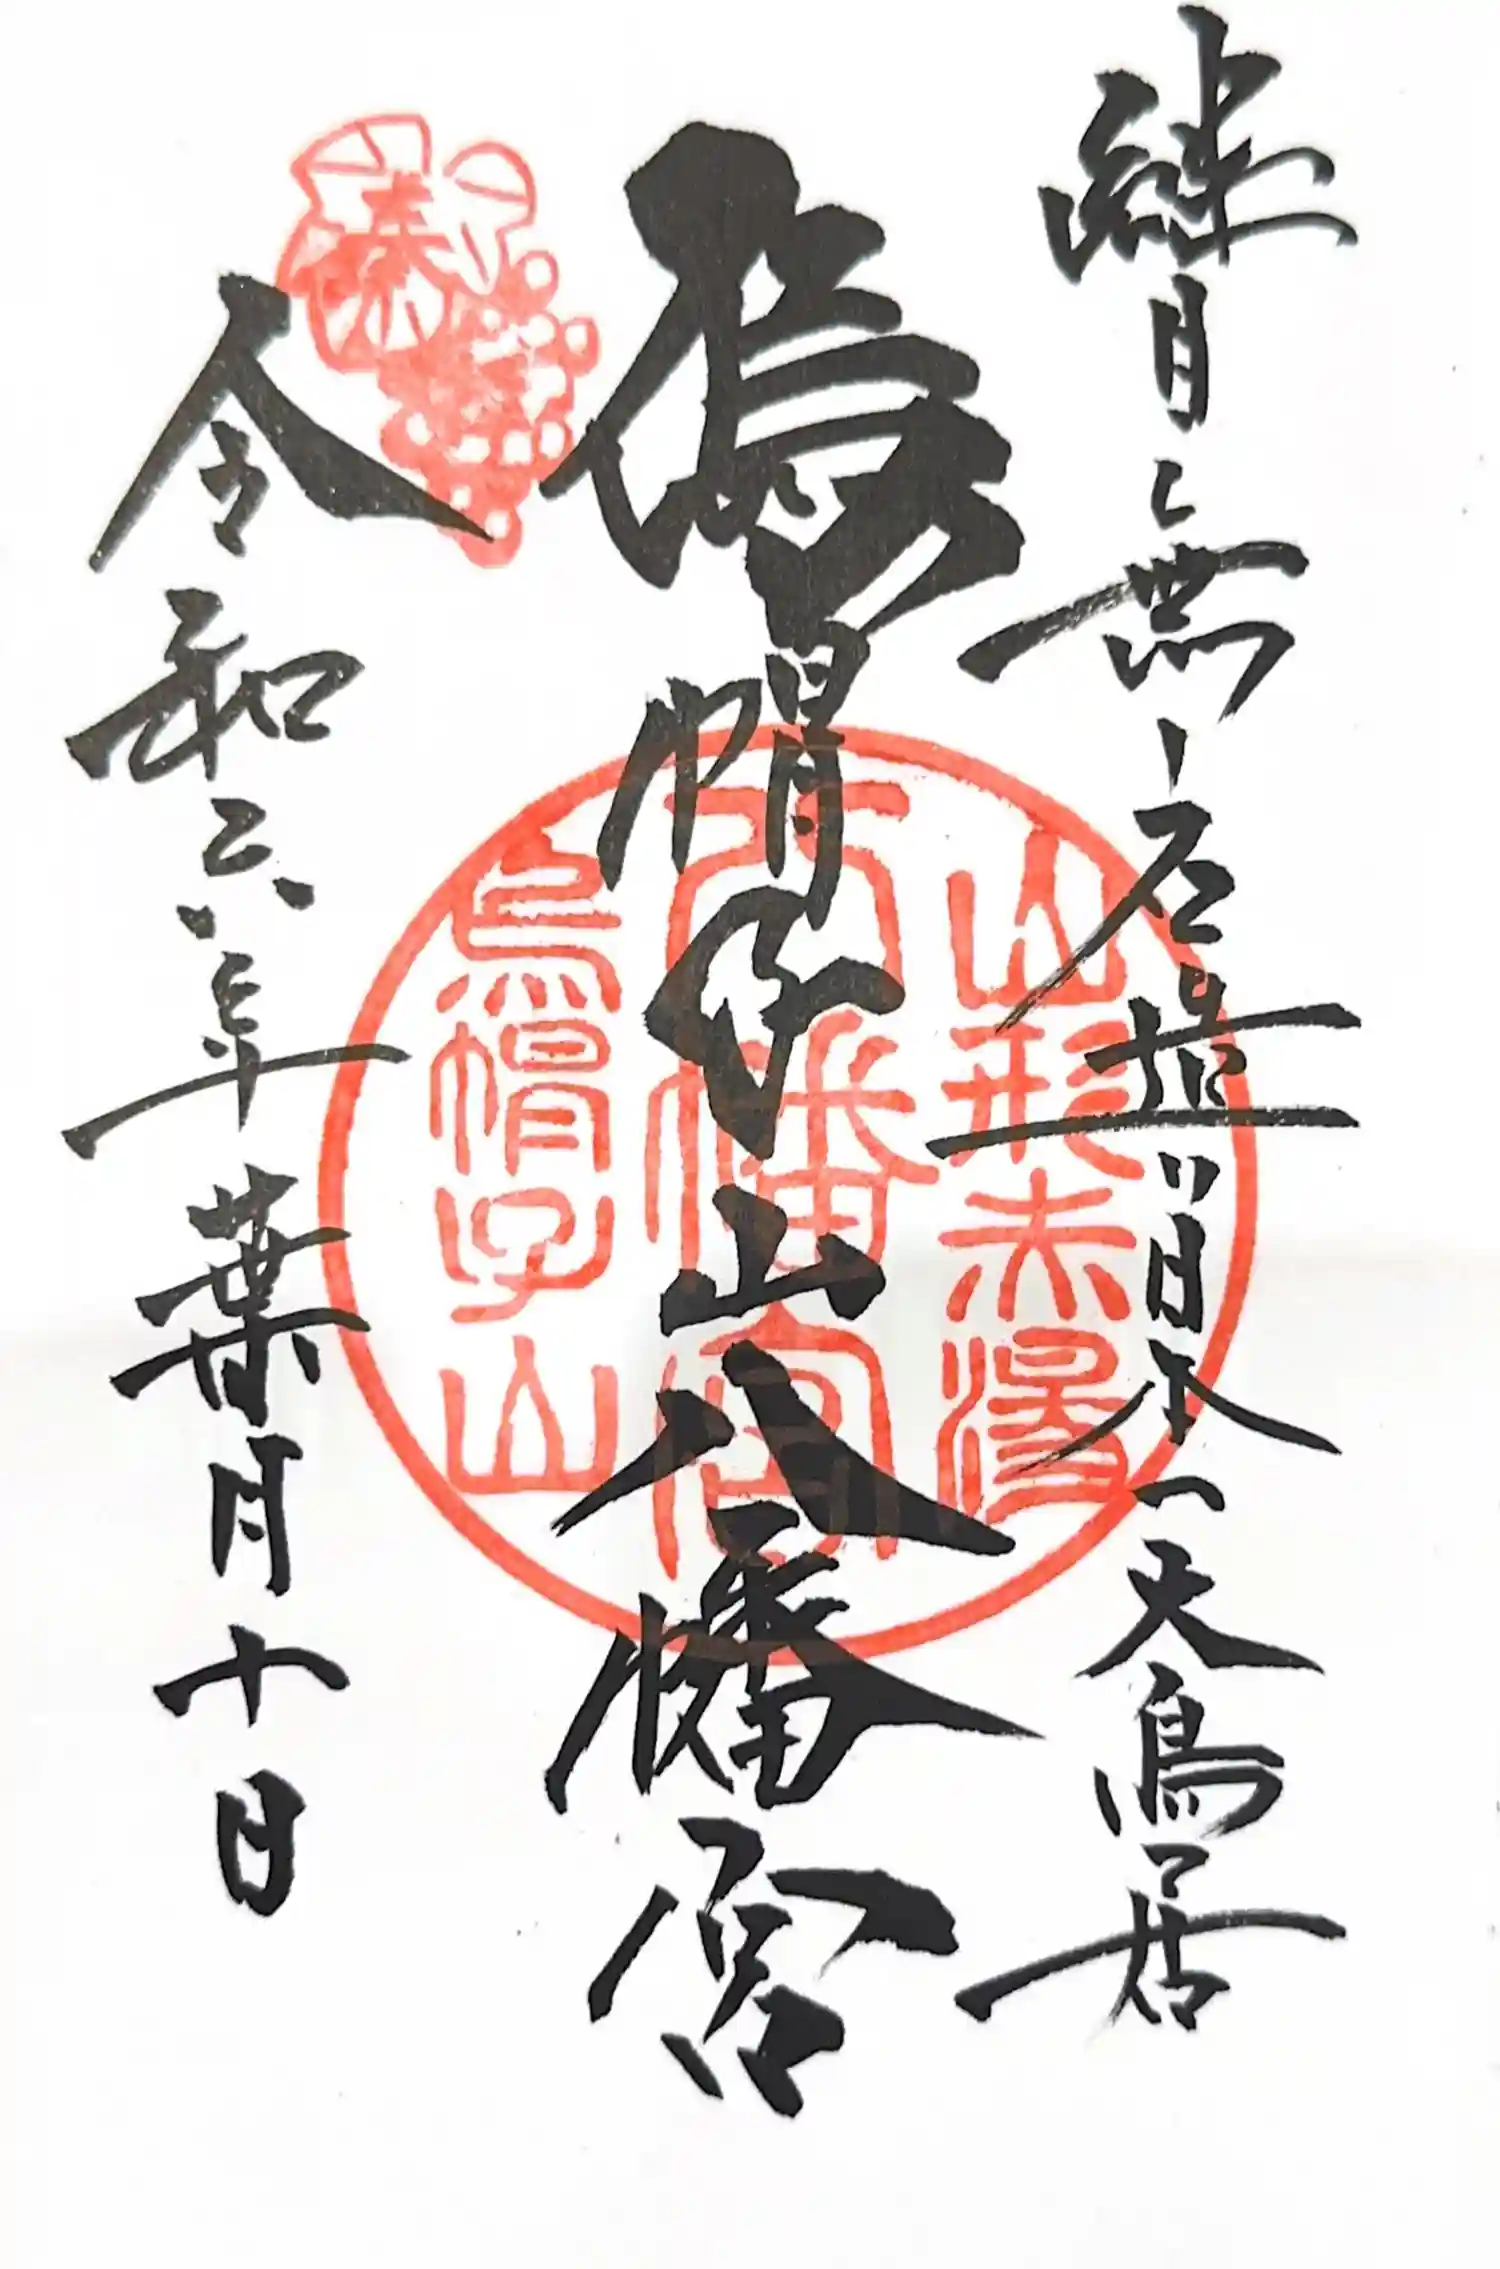 継目無し石造り日本一大鳥居
烏帽子山八幡宮
令和六年葉月十日
奉拝
山形赤湯
八幡宮
烏帽子山